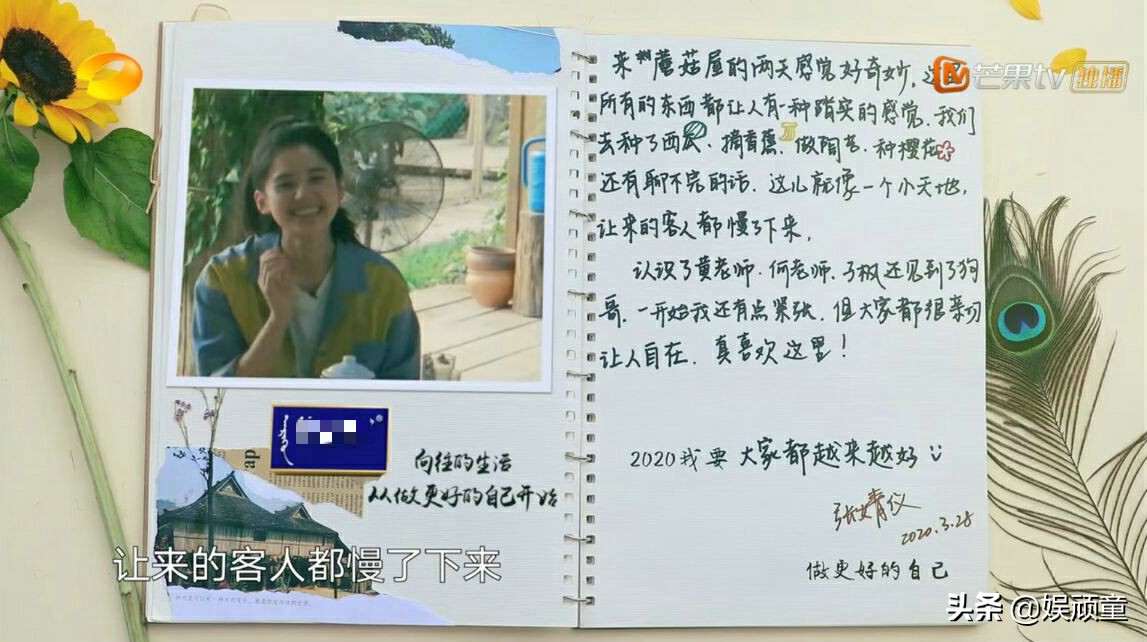 芒果tv 独播
来 蘑菇屋的两天感觉好奇妙,这里
所有的东西都让人有一种踏实的感觉.我们
去种了西瓜、摘香蕉、做陶艺、种樱花
还有聊不完的话.这儿就像一个小天地,
让来的客人都慢了下来,
认识了黄老师.何老师.子枫还见到了狗
哥.一开始我还有点紧张.但大家都很亲切
让人自在.真喜欢这里!
2020我要 大家都越来越好
张婧仪
2020.3.28
做更好的自己
ap
向往的生活
从做更好的自己开始
让来的客人都慢了下来
头条 @娱顽童